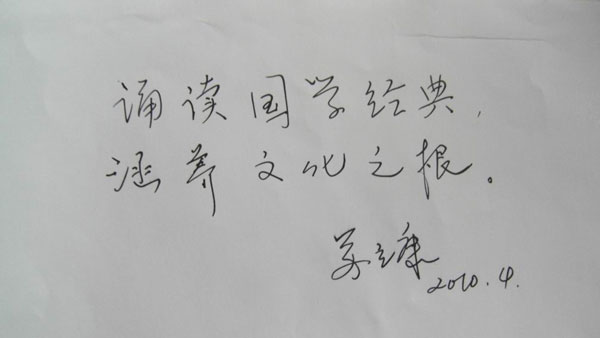 诵读国学经典,
涵养文化之根。
苏立康
2010.4.